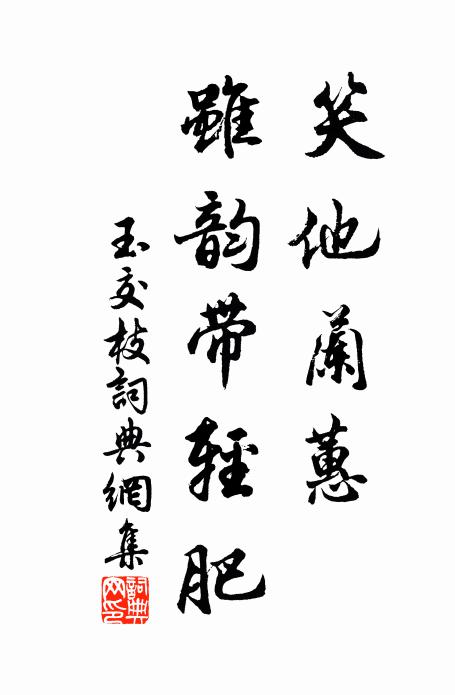 笑他蘭蕙
雖韵帶輕肥
玉交枝詞典網集
詞典网印